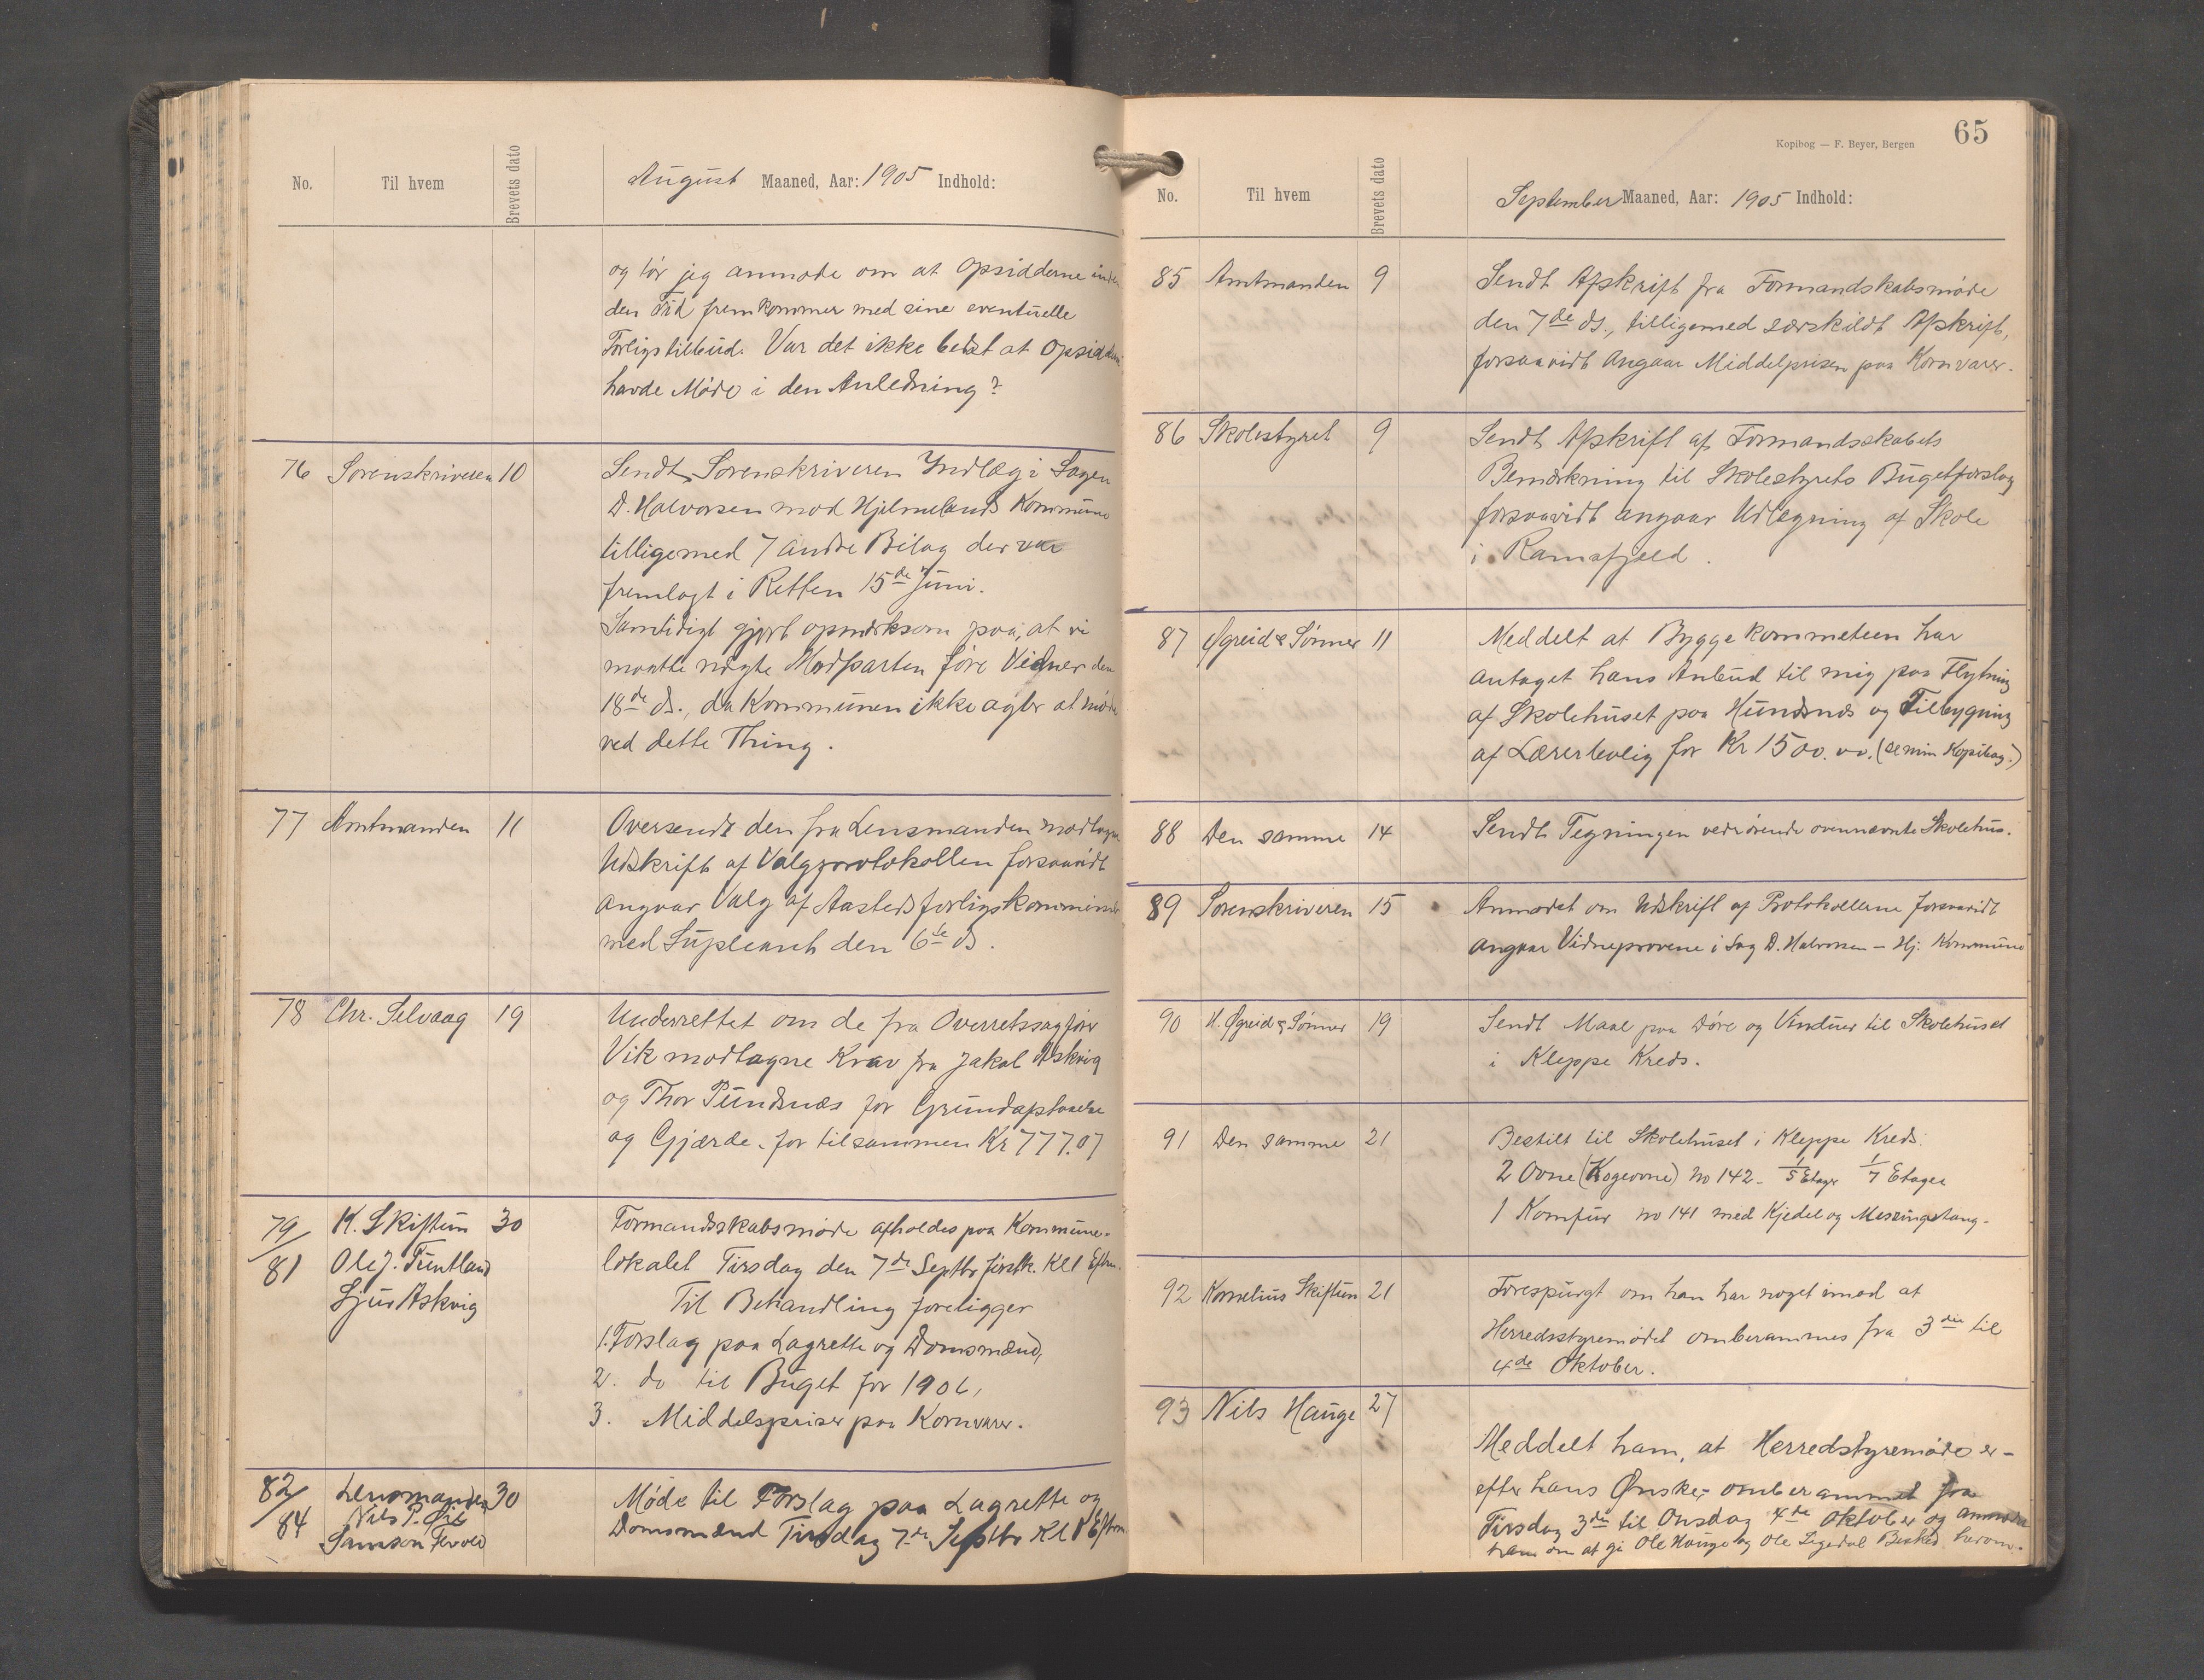 No. Til hvem Brevets dato August Maaned, Aar: 1905 Indhold:
og tør jeg anmode om at Opsidderne inden
den Tid fremkommer med sine eventuelle
Forligstilbud. Var det ikke bedst at Opsidderne
havde Møde i den Anledning?
76 Sorenskriveren 10 Sendt Sorenskriveren Indlæg i Sagen
D. Halvorsen mod Hjelmelands Kommune
tilligemed 7 andre Bilag der var
fremlagt i Retten 15de Juni.
Samtidigt gjort opmærksom paa, at vi
maatte nægte Modparten føre Vidner den
18de ds., da Kommunen ikke agter at møde
ved dette Thing.
77 Amtmanden 11 Oversendt den fra Lensmanden modtagne
Udskrift af Valgprotokollen forsaavidt
angaar Valg af Aastedsforligskommissær
med Supleant den 6te ds.
78 Chr. Selvaag 19 Underrettet om de fra Overretssagfører
Vik modtagne Krav fra Jakob Askvig
og Thor Pundsnæs for Grundafstaaelse
og Gjærde for tilsammen Kr 777.07
79/81 K. Skiftun 30 Formandsskabsmøde afholdes paa Kommune-
Ole J. Funtland lokalet Tirsdag den 7de Septbr førstk. Kl 1 Efterm.
Sjur Askvig Til Behandling foreligger
1. Forslag paa Lagrette og Domsmænd,
2. do til Buget for 1906,
3. Middelspriser paa Kornvarer.
82/84 Lensmanden 30 Møde til Forslag paa Lagrette og
Nils P. Øie Domsmænd Tirsdag 7de Septbr Kl 1 Efterm
Samson
65
Kopibog — F. Beyer, Bergen
No. Til hvem Brevets dato September Maaned, Aar: 1905 Indhold:
85 Amtmanden 9 Sendt Afskrift fra Formandskabsmøde
den 7de ds., tilligemed særskildt Afskrift,
forsaavidt angaar Middelprisen paa Kornvarer.
86 Skolestyret 9 Sendt Afskrift af Formandsskabets
Bemærkning til Skolestyrets Bugetforslag
forsaavidt angaar Udlægning af Skole
i Ramsfjeld.
87 Øgreid & Sønner 11 Meddelt at Byggekommeteen har
antaget hans Anbud til mig paa Flytning
af Skolehuset paa Hundsnæs og Tilbygning
af Lærerbolig for Kr 1500.00. (se min Kopibog.)
88 Den samme 14 Sendt Tegningen vedrørende ovennævnte Skolehus.
89 Sorenskriveren 15 Anmodet om Udskrift af Protokollerne forsaavidt
angaar Vidneprovene i Sag D. Halvorsen – Hj. Kommune
90 H. Øgreid & Sønner 19 Sendt Maal paa Døre og Vinduer til Skolehuset
i Kleppe Kreds.
91 Den samme 21 Bestilt til Skolehuset i Kleppe Kreds:
2 Ovne (Kogeovne) No 142 – 1/5 Etager 1/7 Etager
1 Komfur no 141 med Kjedel og Messingstang.
92 Kornelius Skiftun 21 Forespurgt om han har noget imod at
Herredsstyremødet omberammes fra 3die til
4de Oktober.
93 Nils Hauge 27
Meddelt ham, at Herredstyremøde er –
efter hans Ønske – omberammet fra
Tirsdag 3die til Onsdag 4de Oktober og anmodet
ham om at gi Ole Hauge og Ole Besked herom.